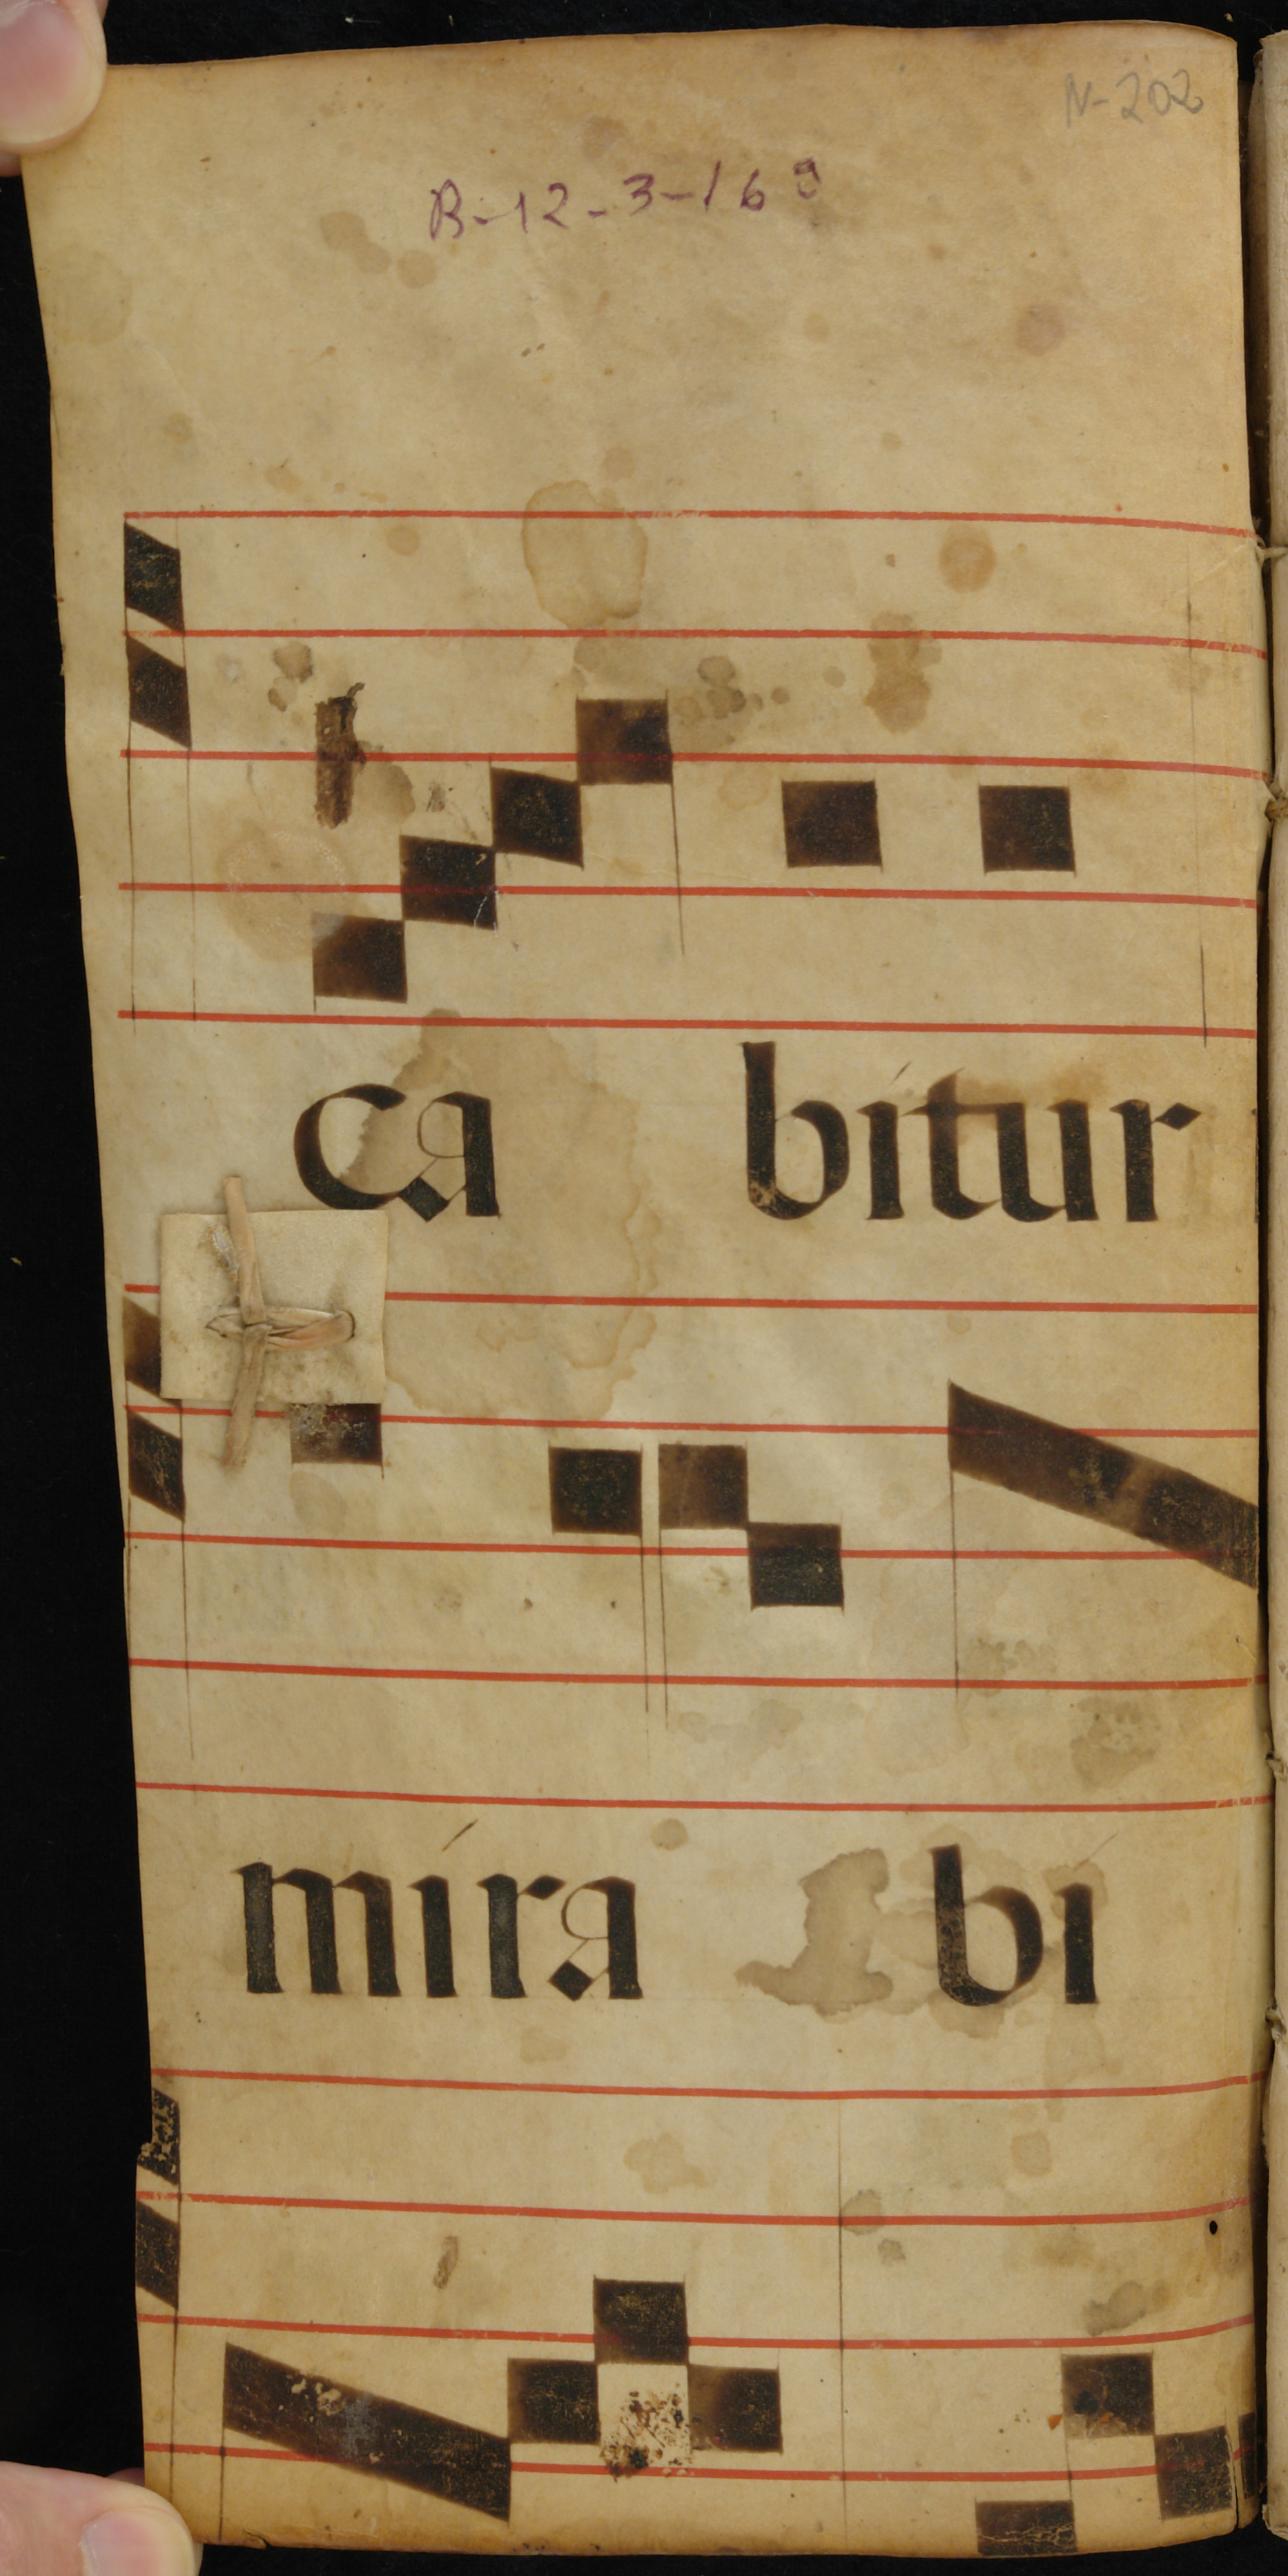 N-202
B-12-3-169
ca bitur
mira bi